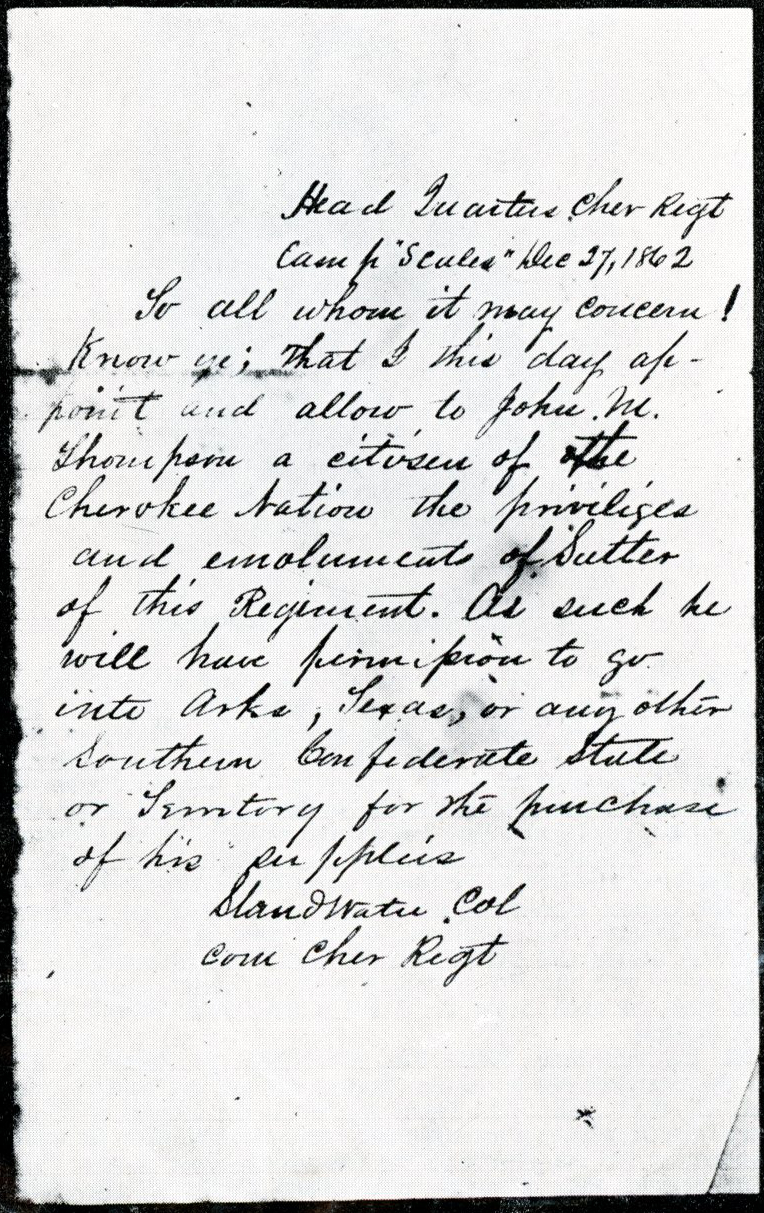 Head Quarters Cher Regt
Camp "Scales" Dec 27, 1862
To all whom it may concern!
Know ye; that I this day ap-
point and allow to John M.
Thompson a citisen of the
Cherokee Nation the priviliges
and emoluments of Sutter
of this Regiment. As such he
will have permission to go
into Arks, Texas, or any other
Southern Confederate State
or Territory for the purchase
of his supplies
Stand Watie Col
Com Cher Regt